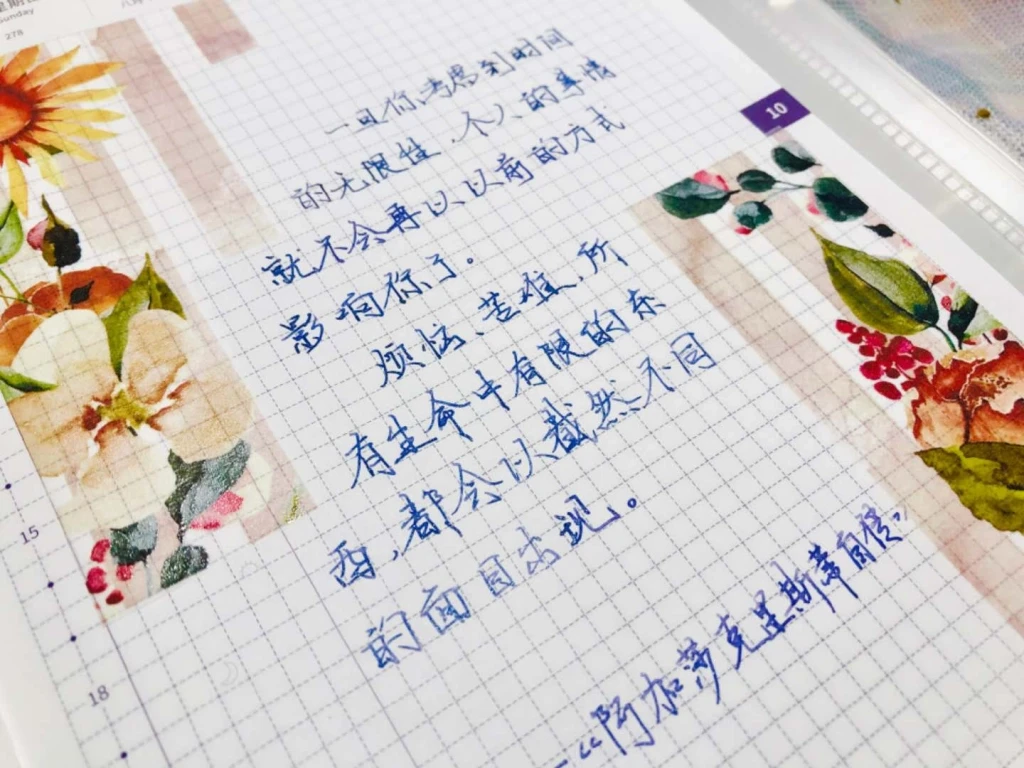 Sunday
278
10
一旦你考虑到时间
的无限性，个人的事情
就不会再以以前的方式
影响你了。
烦恼、苦难、所
有生命中有限的东
西，都会以截然不同
的面目出现。
—《阿加莎克里斯蒂自传》
15
18